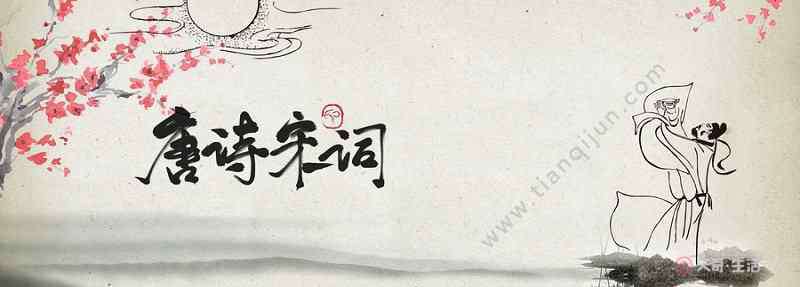 唐诗宋词
www.tianqijun.com